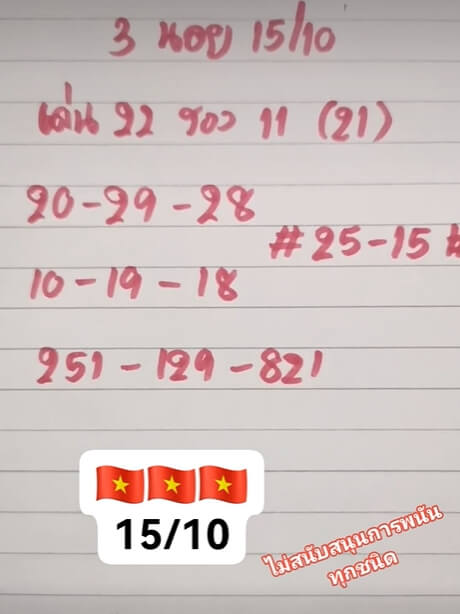 3 นอย 15/10
เล่น 22 รอง 11 (21)
20-29-28
#25-15#
10-19-18
251-129-821
15/10
ไม่สนับสนุนการพนัน
ทุกชนิด